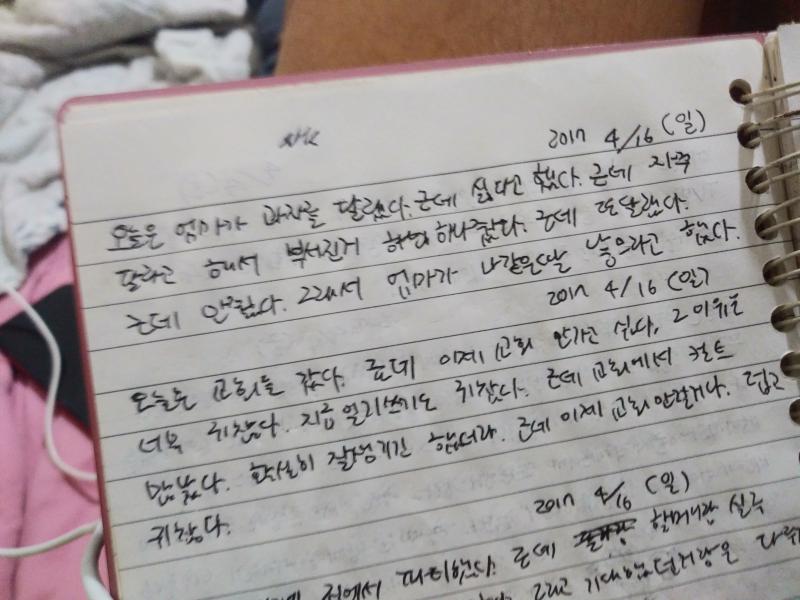 2017 4/16 (일)
오늘은 엄마가 과자를 달랬다. 근데 싫다고 했다. 근데 자꾸
달라고 해서 부서진거 하나줬다. 근데 또달랬다.
근데 안줬다. 그래서 엄마가 나같은딸 낳으라고 했다.
2017 4/16 (일)
오늘은 교회를 갔다. 근데 이제 교회 안가고 싶다. 그 이유는
너무 귀찮다. 지금 일기쓰기도 귀찮다. 근데 교회에서
만났다. 확실히 잘생기긴 했더라. 근데 이제 교회안갈거다. 덥고
귀찮다.
2017 4/16 (일)
집에서 파티했다. 근데 할머니랑 삼촌
그리고 기대했던거랑은 다